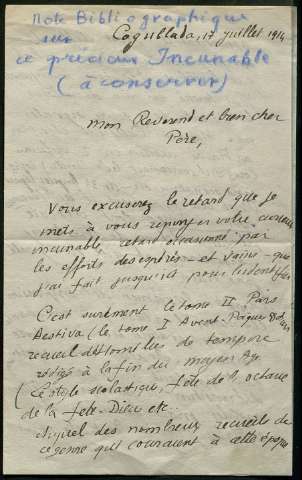 Note Bibliographique
sur
ce précieux Incunable
(à conserver)
Cogullada, 17 juillet 1914
Mon Révérend et bien cher
Père,
Vous excuserez le retard que je
mets à vous renvoyer votre curieux
incunable, retard occasionné par
les efforts désespérés – et vains – que
j'ai fait jusqu'ici pour l'identifier
C'est surement le tome II Pars
Aestiva (le tome I Avent-Pâques) d'un
recueil d'homélies de tempore
rédigé à la fin du moyen Age
(le style scolastique, fête de l'octave
de la fête-Dieu etc.
Auquel des nombreux recueils de
ce genre qui couraient à cette époque